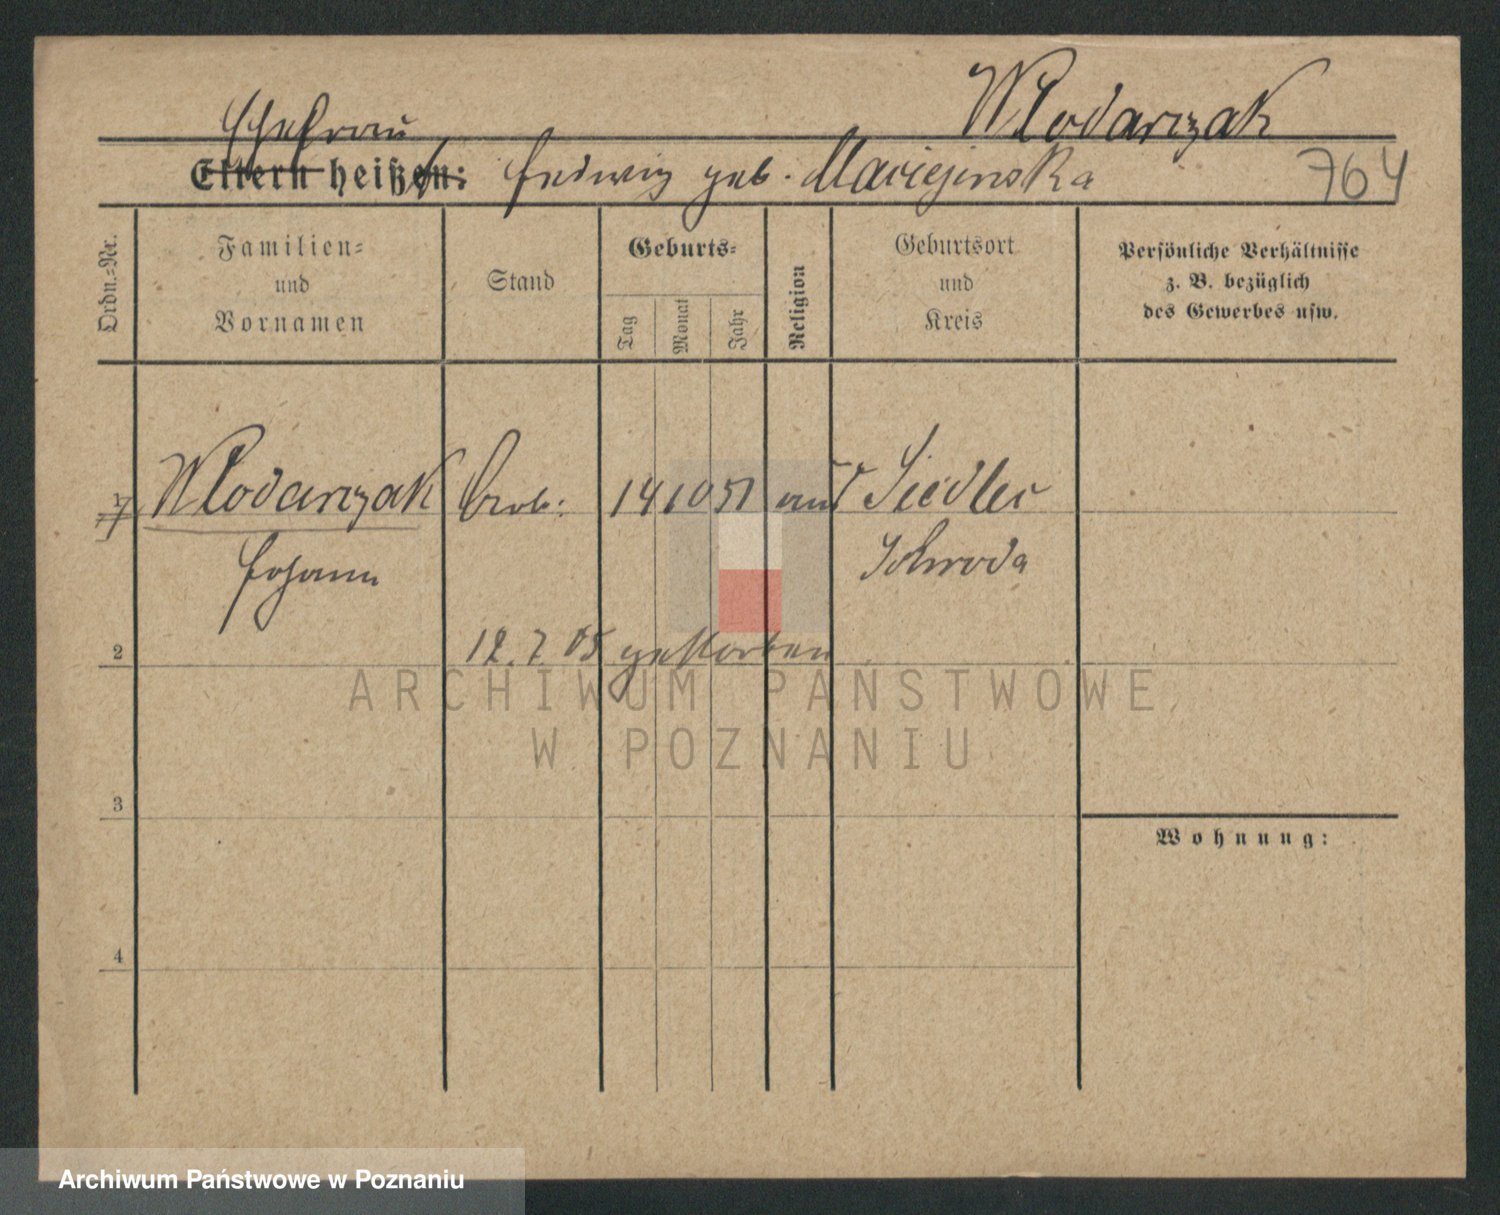 Wlodarczak
Ehefrau
Eltern heißen: Hedwig geb. Maciejinska 764
Ordn.=Nr.
Familien=
und
Vornamen
Stand
Geburts=
Tag
Monat
Jahr
Religion
Geburtsort
und
Kreis
Persönliche Verhältnisse
z. B. bezüglich
des Gewerbes usw.
Wlodarczak 14 10 51 Siedlec
Johann Schroda
2 12. 7. 05 gestorben
ARCHIWUM PAŃSTWOWE
W POZNANIU
3
Wohnung:
4
Archiwum Państwowe w Poznaniu